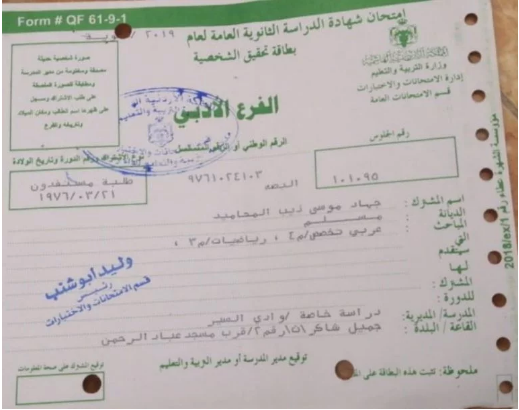 Form # QF 61-9-1
امتحان شهادة الدراسة الثانوية العامة لعام ٢٠١٩
بطاقة تحقيق الشخصية
وزارة التربية والتعليم
إدارة الامتحانات والاختبارات
قسم الامتحانات العامة
صورة شخصية حديثة
مصدقة ومختومة من مدير المدرسة
ومطابقة للصورة الملصقة
على طلب الاشتراك ومسجل
على ظهرها اسم الطالب ومكان الميلاد
وتاريخه والفرع
الفرع الأدبي
رقم الجلوس
١٠١٠٩٥
الرقم الوطني أو الرقم المتسلسل
٩٧٦١٠٢٤١٠٣
نوع الاشتراك ورقم الدورة وتاريخ الولادة
طلبة مستنفدون
١٩٧٦/٠٣/٢١
اسم المشترك : جهاد موسى ذيب المحاميد
الديانة : مسلم
المباحث : عربي تخصص/م٤ ، رياضيات/م٣ ،
التي
سيتقدم
لها
المشترك :
للدورة :
المدرسة/ المديرية : دراسة خاصة /وادي السير
القاعة / البلدة : جميل شاكر/ث/رقم٢/قرب مسجد عباد الرحمن
وليد ابو شنب
رئيس
قسم الامتحانات والاختبارات
توقيع مدير المدرسة أو مدير التربية والتعليم
توقيع المشترك على صحة المعلومات
ملحوظة: تثبت هذه البطاقة على
2018/ex/1